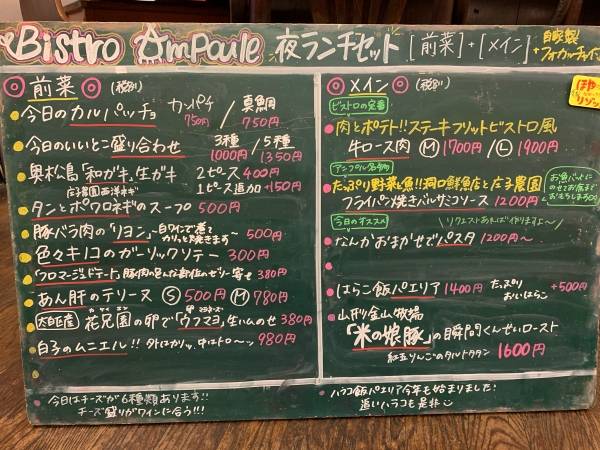 Bistro Ampoule 夜ランチセット [前菜]+[メイン]
+自家製
フォカッチャ
◎前菜◎ (税別)
今日のカルパッチョ カンパチ 750円 / 真鯛 750円
今日のいいとこ盛り合わせ 3種 1000円 / 5種 1350円
奥松島「和ガキ」生ガキ 2ピース400円
1ピース追加+150円
庄子農園西洋ネギ
タンとポワロネギのスープ 500円
豚バラ肉の「リヨン」~白ワインで煮てカリッと焼きます~ 500円
色々キノコのガーリックソテー 300円
「フロマージュドテート」豚肉の色んな部位のゼリー寄せ 380円
あん肝のテリーヌ Ⓢ500円 Ⓜ780円
大白区産 花兄園の卵で「ウフマヨ」生ハムのせ 380円
白子のムニエル!! 外はカリッ、中はトロ~ッ 980円
今日はチーズが6種類あります!!
チーズ盛りがワインに合う!!!
◎メイン◎ (税別)
ビストロの定番
肉とポテト!!ステーキフリットビストロ風
牛ロース肉 Ⓜ1700円 / Ⓛ1900円
アンプル名物
たっぷり野菜と魚!!洞口鮮魚店と庄子農園
フライパン焼きバルサミコソース 1200円
今日のオススメ
リクエストあれば作りますよ~
なんかおまかせでパスタ 1200円~
はらこ飯パエリア 1400円 たっぷりおいはらこ +500円
山形金山牧場
「米の娘豚」の瞬間くんせいロースト
紅玉りんごのタルトタタン 1600円
ハラコ飯パエリア今年も始まりました!
追いハラコも是非